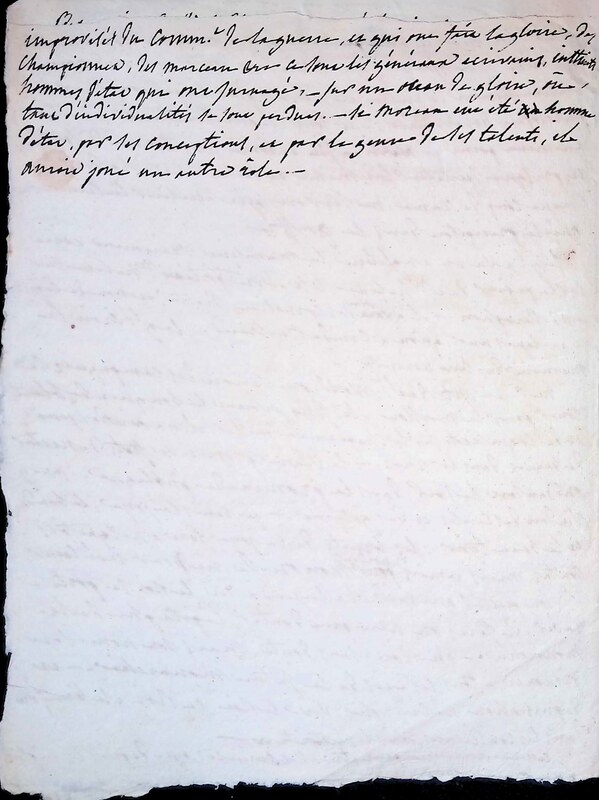 improvisés du Comm.t de la guerre, et qui ont fait la gloire, des
Championnet, des marceau &c ce sont les généraux écrivains,
hommes d'état qui ont surnagé, – sur un océan de gloire, où
tant d'individualités se sont perdues. – Si Moreau eut été homme
d'état, par ses conceptions, et par le genre de ses talents, il
auroit joué un autre rôle. –